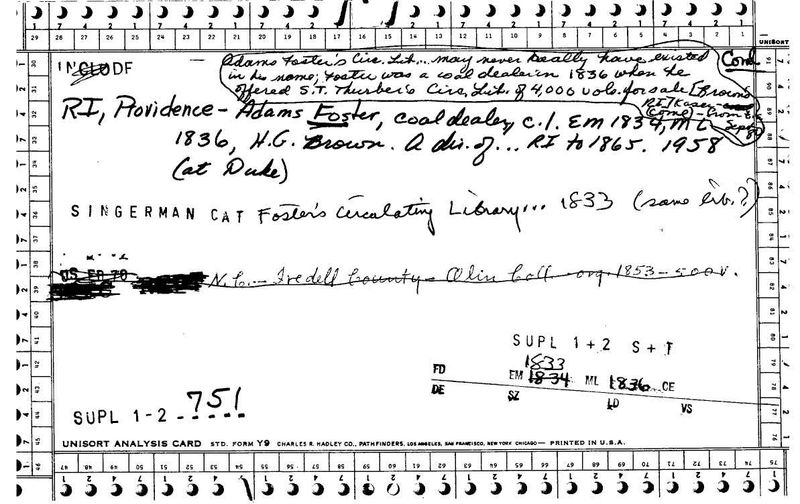 29 28 27 26 25 24 23 22 21 20 19 18 17 16 15 14 13 12 11 10 9 8 7 6 5 4 3 2 1
UNISORT
INCLUDF
Adams Foster's Circ. Lib... may never really have existed
in his name; Foster was a coal dealer in 1836 when he
offered S.T. Thurber's Circ. Lib. of 4,000 vols. for sale [Brown's
RI, Providence - Adams Foster, coal dealer, c.l. EM 1834, ML
1836, H.G. Brown. A dir. of... RI to 1865. 1958
(at Duke)
SINGERMAN CAT Foster's Circulating Library... 1833 (same lib.?)
US ED 70
N.C. - Iredell County - Olin Coll - org. 1853 - 500 v.
SUPL 1+2 S+T
1833
FD EM 1834 ML 1836 CE
DE SZ LD VS
SUPL 1-2 751
UNISORT ANALYSIS CARD STD. FORM Y9 CHARLES R. HADLEY CO., PATHFINDERS, LOS ANGELES, SAN FRANCISCO, NEW YORK CHICAGO — PRINTED IN U.S.A.